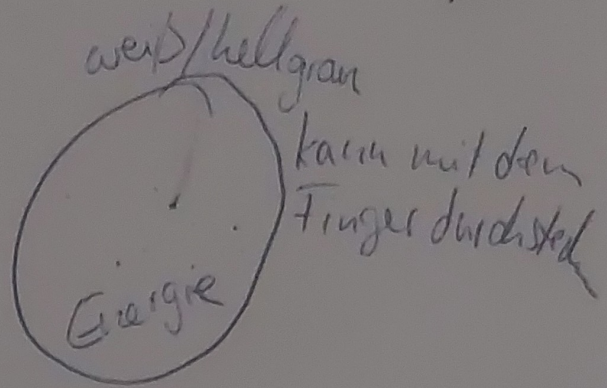 weiß/hellgrau
kann mit dem
Finger durchsteck
Energie